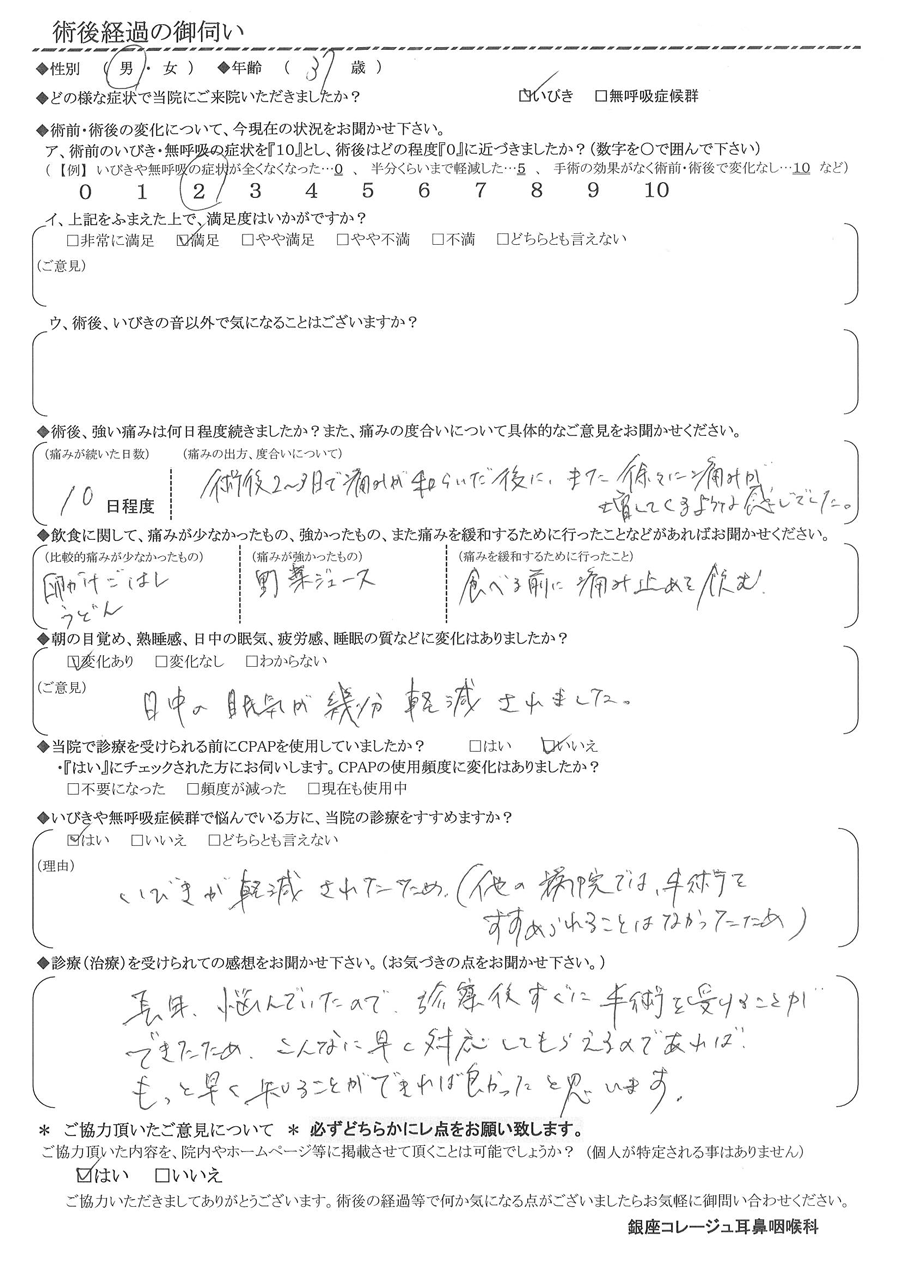 術後経過の御伺い
◆性別 （ 男 ・ 女 ） ◆年齢 （ 37 歳 ）
◆どの様な症状で当院にご来院いただきましたか？ ☑いびき □無呼吸症候群
◆術前・術後の変化について、今現在の状況をお聞かせ下さい。
ア、術前のいびき・無呼吸の症状を『10』とし、術後はどの程度『0』に近づきましたか？（数字を〇で囲んで下さい）
（ 【例】 いびきや無呼吸の症状が全くなくなった…0 、 半分くらいまで軽減した…5 、 手術の効果がなく術前・術後で変化なし…10 など）
0 1 2 3 4 5 6 7 8 9 10
イ、上記をふまえた上で、満足度はいかがですか？
□非常に満足 ☑満足 □やや満足 □やや不満 □不満 □どちらとも言えない
(ご意見)
ウ、術後、いびきの音以外で気になることはございますか？
◆術後、強い痛みは何日程度続きましたか？また、痛みの度合いについて具体的なご意見をお聞かせください。
(痛みが続いた日数) (痛みの出方、度合いについて)
10 日程度 術後2～3日で痛みが和らいだ後に、また徐々に痛みが
増してくるような感じでした。
◆飲食に関して、痛みが少なかったもの、強かったもの、また痛みを緩和するために行ったことなどがあればお聞かせください。
(比較的痛みが少なかったもの) (痛みが強かったもの) (痛みを緩和するために行ったこと)
卵かけごはん 野菜ジュース 食べる前に痛み止めを飲む。
うどん
◆朝の目覚め、熟睡感、日中の眠気、疲労感、睡眠の質などに変化はありましたか？
☑変化あり □変化なし □わからない
(ご意見)
日中の眠気が幾分軽減されました。
◆当院で診療を受けられる前にCPAPを使用していましたか？ □はい ☑いいえ
・『はい』にチェックされた方にお伺いします。CPAPの使用頻度に変化はありましたか？
□不要になった □頻度が減った □現在も使用中
◆いびきや無呼吸症候群で悩んでいる方に、当院の診療をすすめますか？
☑はい □いいえ □どちらとも言えない
(理由)
いびきが軽減されたため。（他の病院では、手術を
すすめられることはなかったため）
◆診療（治療）を受けられての感想をお聞かせ下さい。（お気づきの点をお聞かせ下さい。）
長年、悩んでいたので、診察後すぐに手術を受けることが
できたため、こんなに早く対応してもらえるのであれば、
もっと早く知ることができれば良かったと思います。
＊ ご協力頂いたご意見について ＊ 必ずどちらかにレ点をお願い致します。
ご協力頂いた内容を、院内やホームページ等に掲載させて頂くことは可能でしょうか？ （個人が特定される事はありません）
☑はい □いいえ
ご協力いただきましてありがとうございます。術後の経過等で何か気になる点がございましたらお気軽に御問い合わせください。
銀座コレージュ耳鼻咽喉科